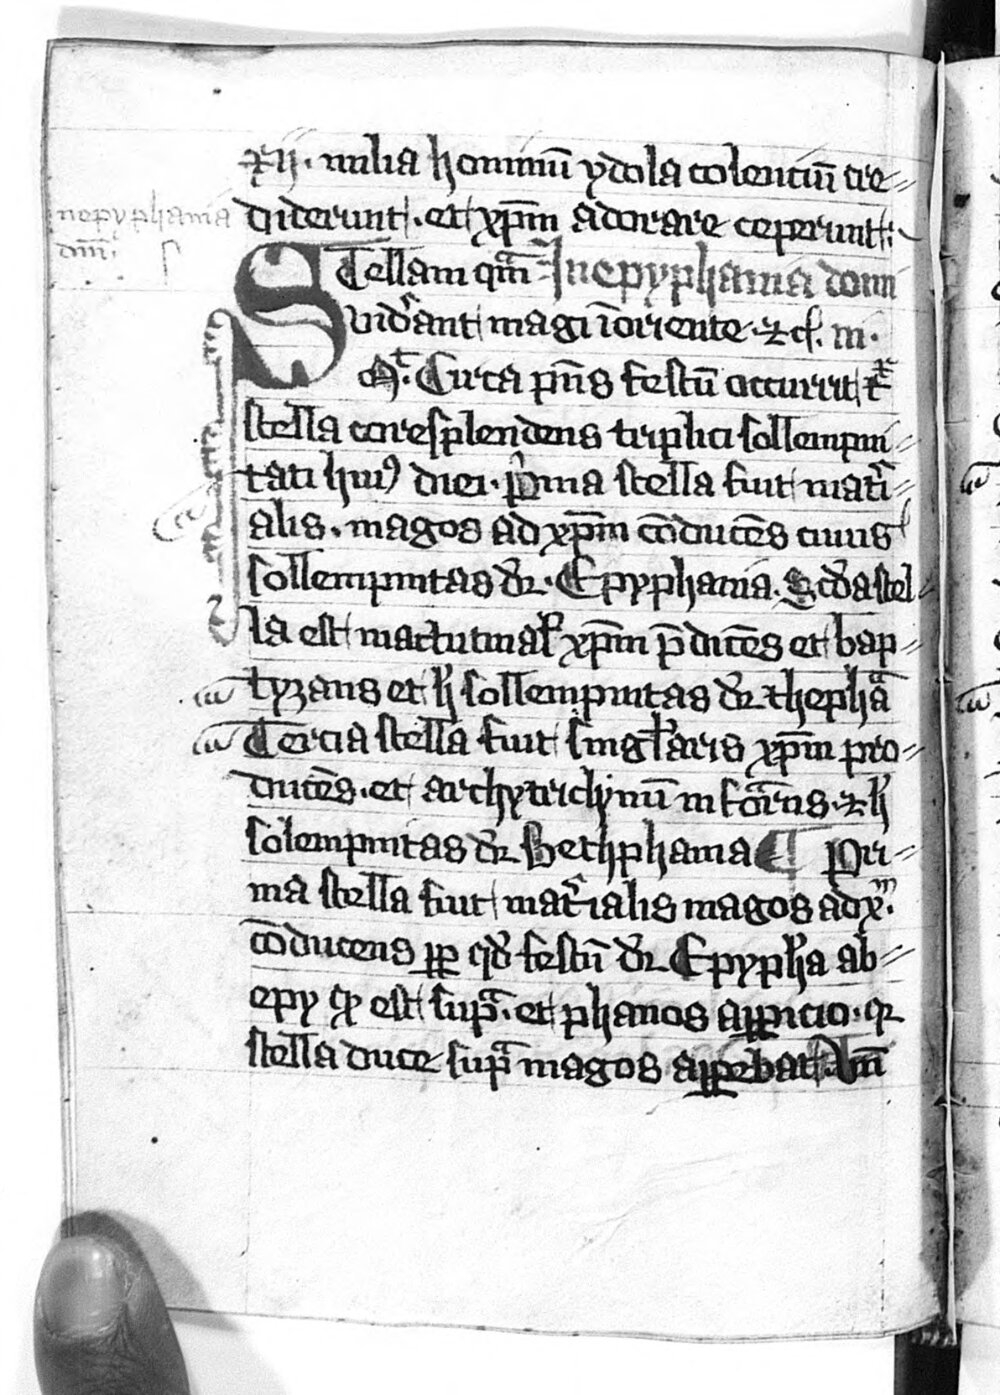 xii. milia hominū ydola colenciū cre〃
diderunt. et xp̄m adorare ceperunt.
nepyphania
dn̄i.
Stellam quā In epyphania domi
viderant magi ī oriente. ⁊ cͣ. m.
Mͭ. Circa p̄ns festū occurrit
stella coresplendens triplici sollempni〃
tati huiꝰ diei. pͥma stella fuit matͥi〃
alis. magos ad xp̄m cōducēs cuius
sollempnitas dr̄. Epyphania. Scd̓a stel〃
la est matutinal̓ xp̄m p̄dicēs et bap〃
tyzans et h̓ sollempnitas dr̄ thephāa
Tercia stella fuit singl̓aris xp̄m pro〃
ducēs. et archytriclynū īformās. ⁊ h̓
solempnitas dr̄ Bethphania ¶ Pri〃
ma stella fuit matͥialis magos ad xͫ.
cōducens ꝓꝑ qd̓ festū dr̄ Epyph̓a ab〃
epy qd̓ est supͣ. et phanos apparicio. qꝛ
stella duce supͣ magos apparebat